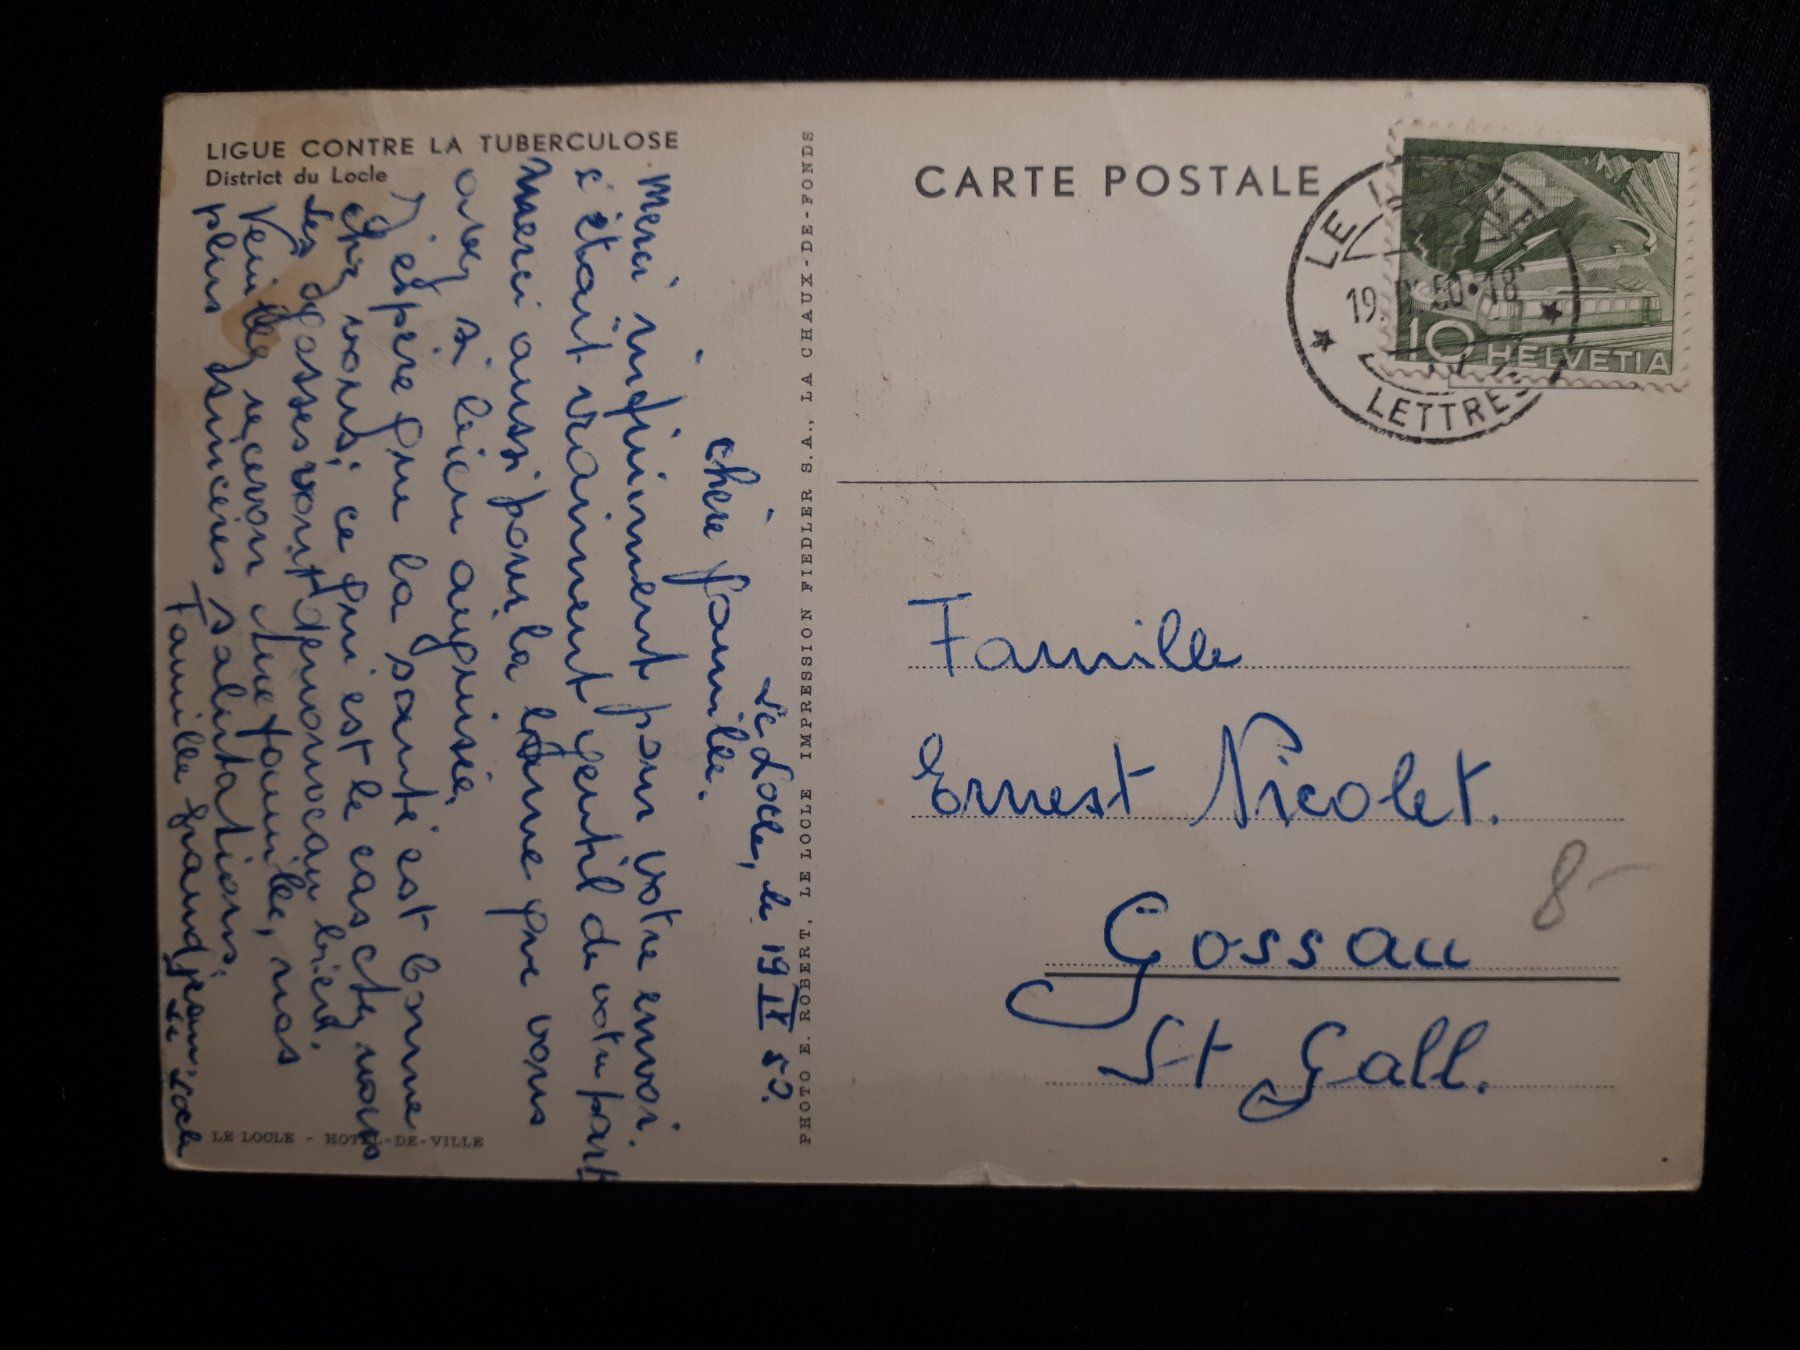 LIGUE CONTRE LA TUBERCULOSE
District du Locle
Le Locle, le 19 IX 50.
Chère famille.
Merci infiniment pour votre envoi.
s'était vraiment gentil de votre part
Merci aussi pour la laine que vous
avez si bien aiguisée,
J'espère que la santé est bonne
chez vous, ce qui est le cas chez nous
Les gosses vont de nouveau bien.
Veuillez recevoir chère famille, nos
plus sincères salutations,
Famille Grandjean, Le Locle
LE LOCLE - HOTEL-DE-VILLE
PHOTO E. ROBERT, LE LOCLE IMPRESSION FIEDLER S.A., LA CHAUX-DE-FONDS
CARTE POSTALE
LE LOCLE
19. IX. 50. 18
LETTRES
10 HELVETIA
Famille
Ernest Nicolet.
Gossau
St Gall.
8-